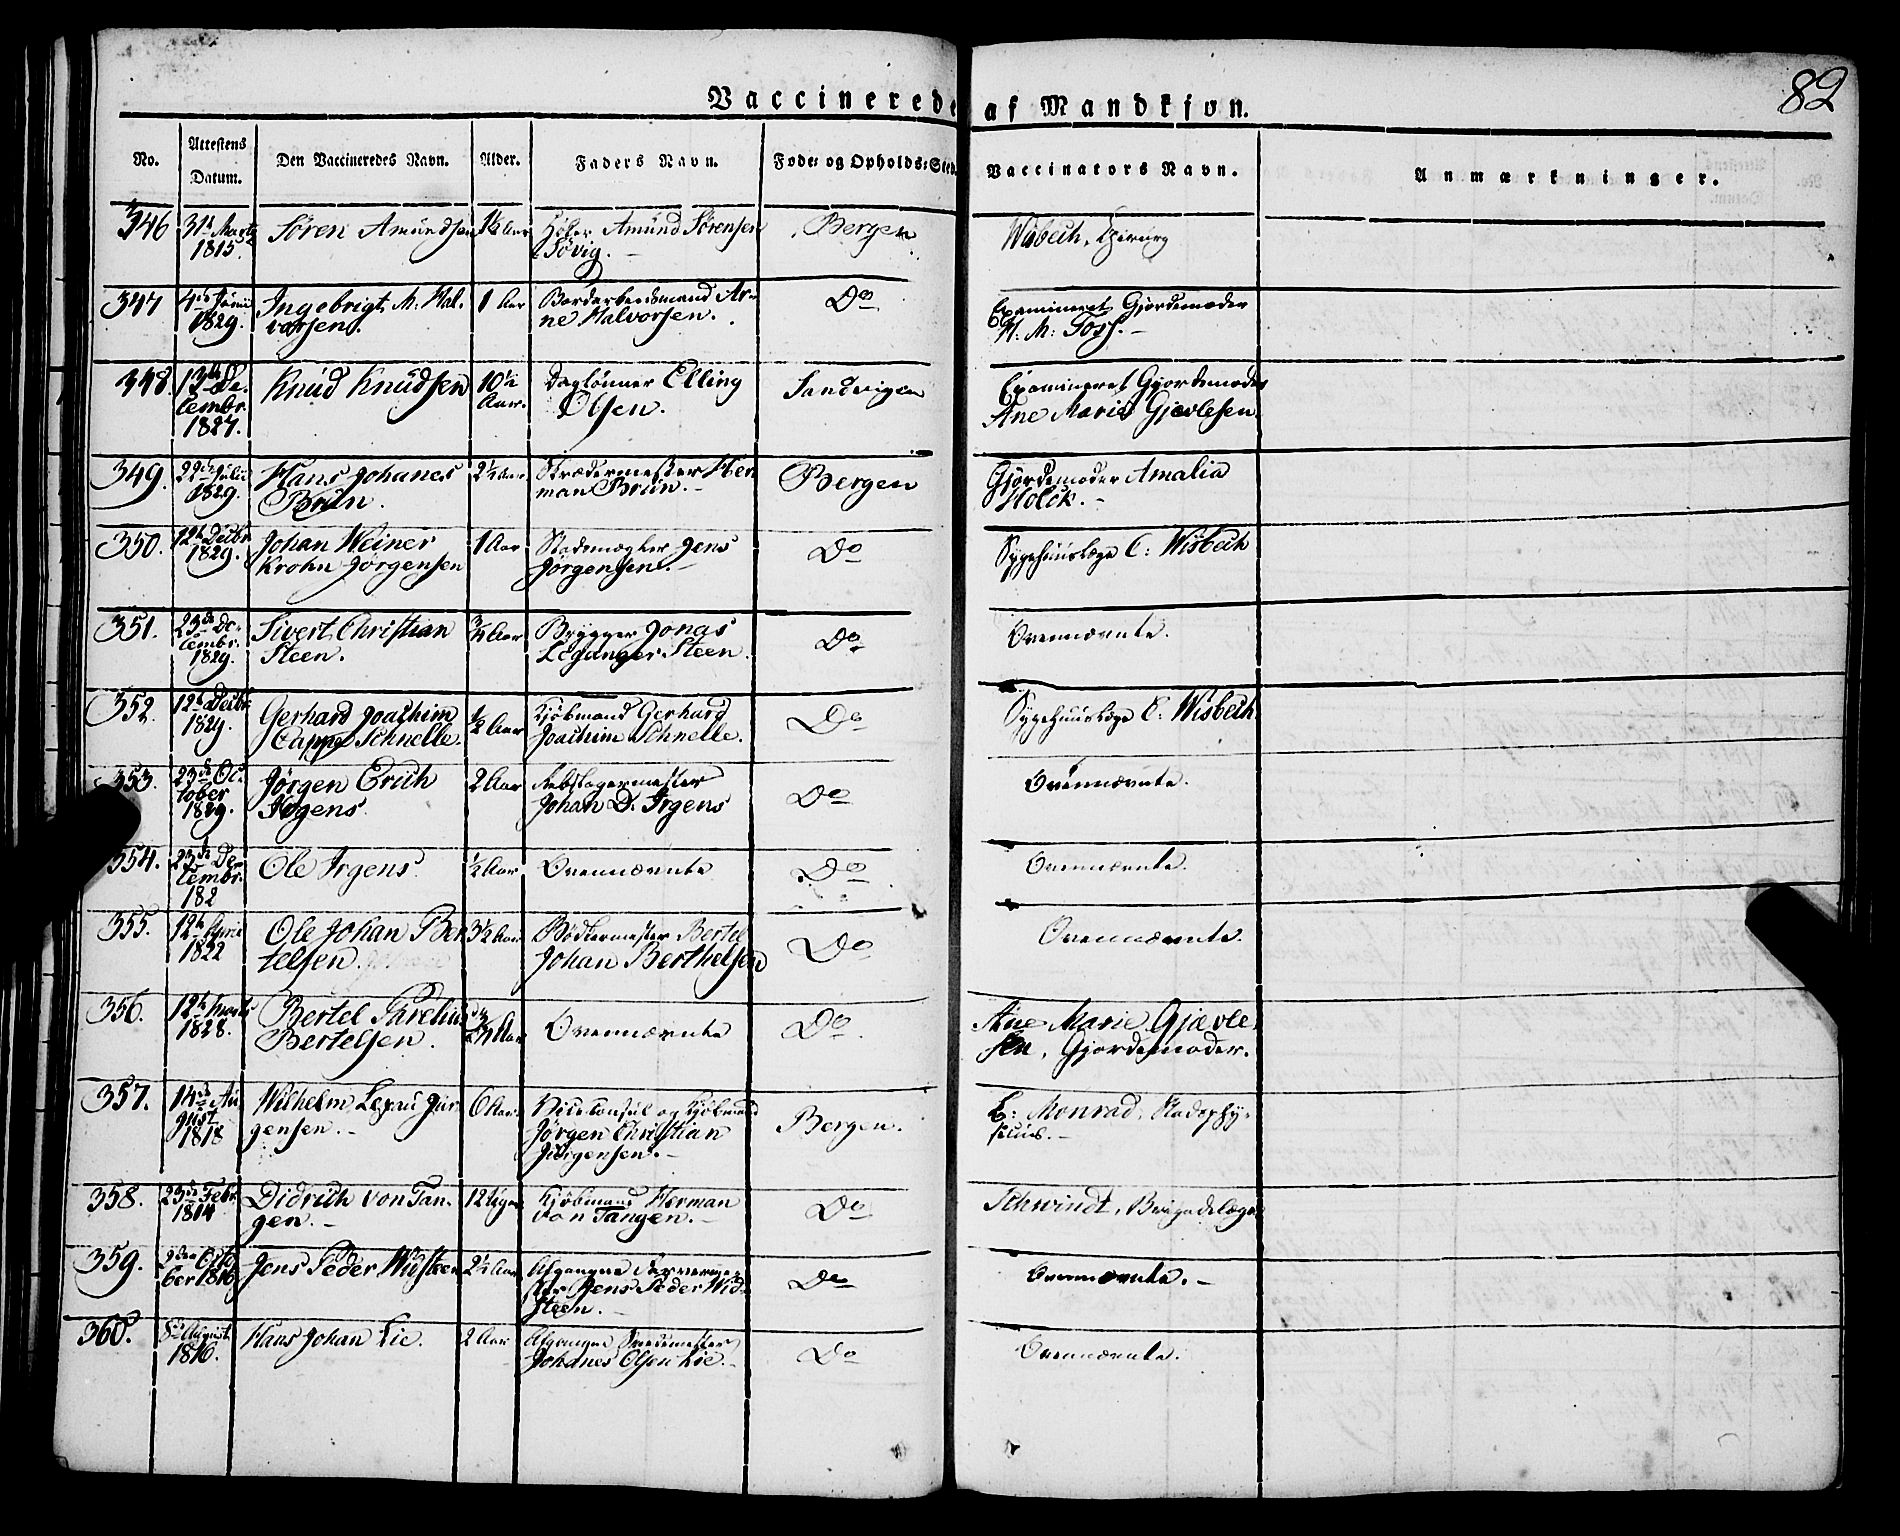 82
Vaccinerede af Mandkjøn.
No. Attestens Datum. Den Vaccineredes Navn. Alder. Faders Navn. Føde- og Opholds-Sted. Vaccinators Navn. Anmærkninger.
346 31te Marts 1815. Søren Amundsen 1½ Aar Amund Sørensen Søvig. Bergen Wisbech, Chirurg
347 4de Junii 1829. Ingebrigt M. Hal-
vorsen. 1 Aar Bordarbeidsmand Ar-
ne Halvorsen. Do Examineret Gjordemoder
M: Foss.
348. 13de De-
cembr.
1827. Knud Knudsen 10½
Aar. Daglønner Elling
Olsen. Sandvigen Examineret Gjordemoder
Ane Marie Gjævlesen
349. 22de Julii
1829. Hans Johanes
Brun. 2½ Aar Skrædermester Her
man Brun. Bergen Gjordemoder Amalia
Holck.
350. 12te Decbr
1829. Johan Weiner
Krohn Jørgensen 1 Aar Stadsmægler Jens
Jørgensen. Do Sygehuuslæge C: Wisbech
351. 23de De-
cembr.
1829. Sivert Christian
Steen. ¾ Aar Brygger Jonas
Leganger Steen. Do Ovennævnte.
352. 12te Decbr
1829. Gerhard Joachim
Cappe Schnelle. ½ Aar Kjøbmand Gerhard
Joachim Schnelle. Do Sygehuuslæge C: Wisbech
353. 23de Oc-
tober
1829. Jørgen Erich
Irgens 2 Aar Rebslagermester
Johan D. Irgens Do Ovennævnte.
354. 23de De-
cembr.
182 Ole Irgens. ½ Aar Ovennævnte Do Ovennævnte.
355. 12te April
1822 Ole Johan Ber
telsen. 3½ Aar Bødkermester Bertel
Johan Berthelsen Do Ovennævnte.
356. 12te Marts
1828. Bertel Parelius
Bertelsen. Aar Ovennævnte Do Ane Marie Gjævle-
sen, Gjordemoder.
357. 14de Au-
gust
1818 Wilhelm Jür-
gensen. 6 Aar. Viceconsul og Kjøbmand
Jørgen Christian
Jürgensen. Bergen. Monrad, Stadsphy-
sicus.
358. 23de Febr.
1814 Didrich von Tan-
gen. 12 Uger Kjøbmand Herman
von Tangen. Do Schwindt, Brigadelæge
359. 2den Octo
ber 1816 Jens Peder Widsteen 2½ Aar Afgangne
Jens Peder Wid-
steen. Do Ovennævnte.
360. 8de August
1816. Hans Johan Lie. 2 Aar Afgangne Smedemester
Johanes Olsen Lie. Do Ovennævnte.